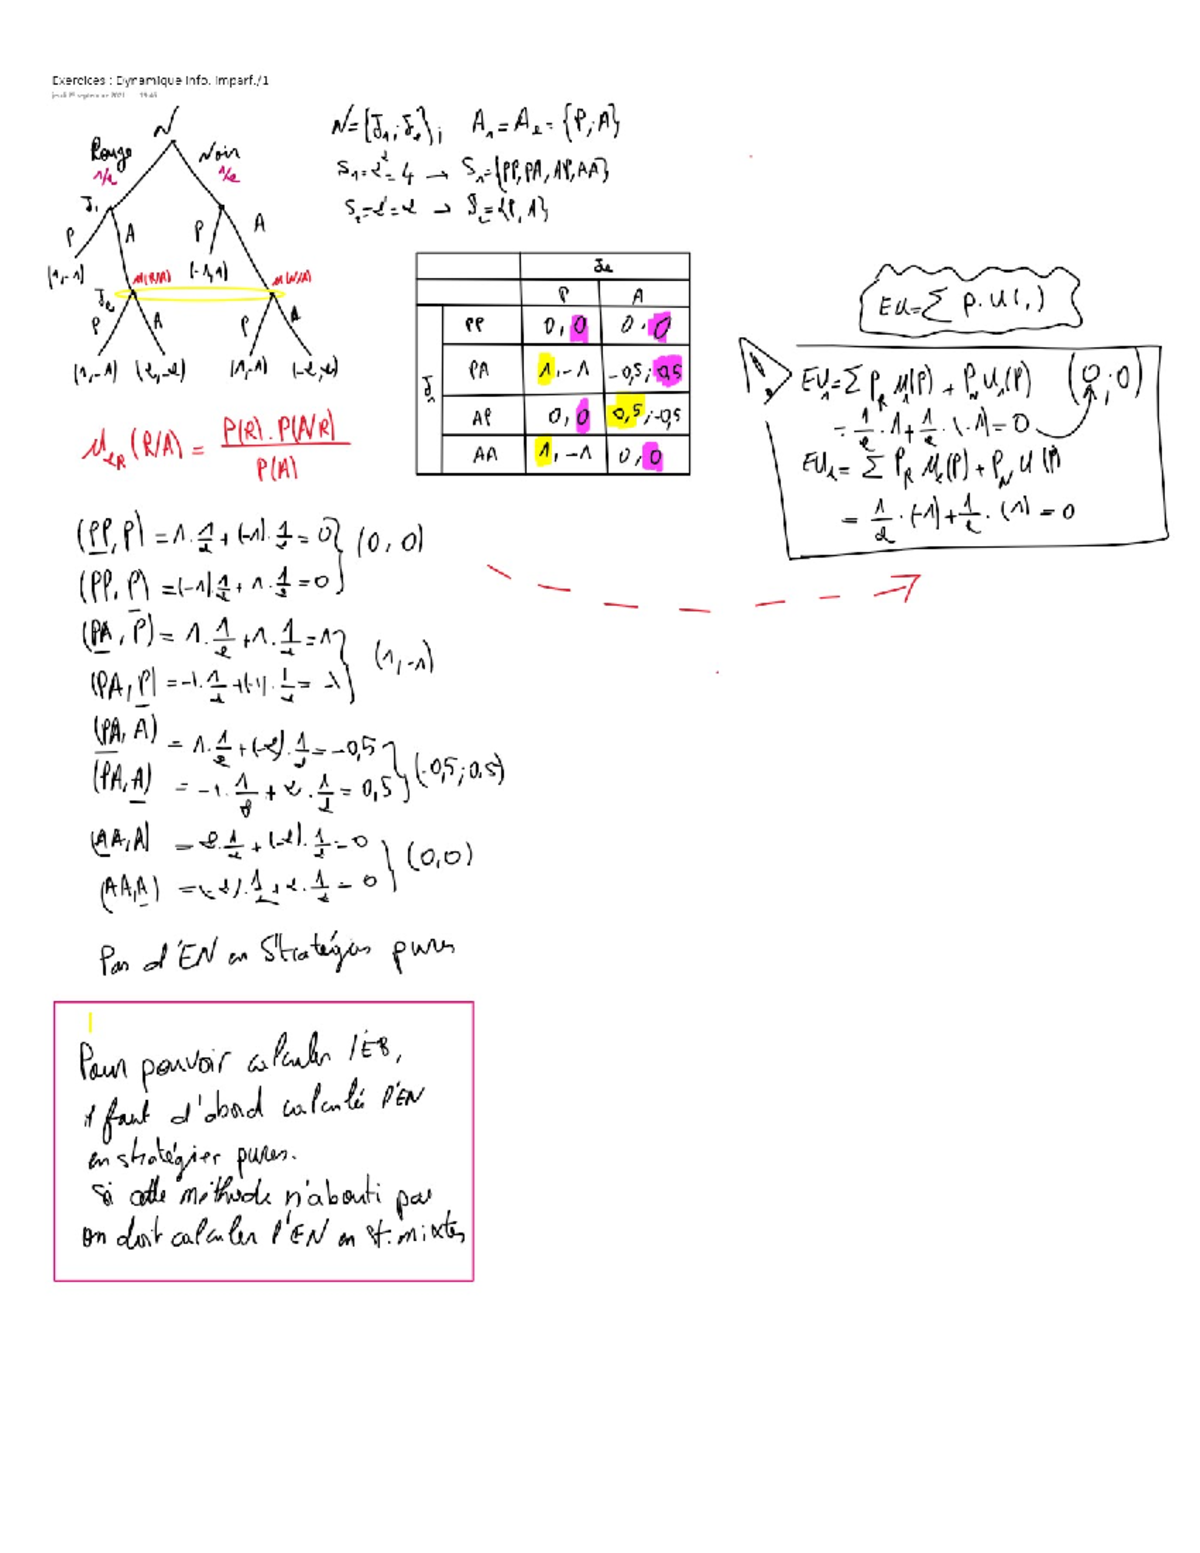 Exercices : Dynamique Info. Imparf./1
N
Rouge Noir
1/2 1/2
J1
P A P A
(1,-1) (-1,1)
μ(R/A) μ(N/A)
J2
P A P A
(1,-1) (2,-2) (1,-1) (-2,2)
N={J1;J2}; A1=A2={P;A}
S1=2²=4 → S1={PP,PA,AP,AA}
S2=2=2 → S2={P,A}
J2
P A
J1
PP 0,0 0,0
PA 1,-1 -0,5;0,5
AP 0,0 0,5;-0,5
AA 1,-1 0,0
EU=Σ P.U(,)
!
EU1=Σ PR U1(P) + PN U1(P) (0,0)
=1/2·1+1/2·(-1)=0
EU2=Σ PR U2(P)+PN U(P)
=1/2·(-1)+1/2·(1)=0
μ2R(R/A)= P(R).P(A/R) / P(A)
(PP,P)=1.1/2+(-1).1/2=0 } (0,0)
(PP,P)=(-1)1/2+1.1/2=0
(PA,P)=1.1/2+1.1/2=1 } (1,-1)
(PA,P)=-1.1/2+(-1).1/2=-1
(PA,A)=1.1/2+(-2).1/2=-0,5 } (-0,5;0,5)
(PA,A)=-1.1/2+2.1/2=0,5
(AA,A)=2.1/2+(-2).1/2=0 } (0,0)
(AA,A)=(-2).1/2+2.1/2=0
Pas d'EN en Stratégies pures
Pour pouvoir calculer l'EB,
il faut d'abord calculé l'EN
en stratégier pures.
Si cette méthode n'abouti pas
on doit calculer l'EN en st.mixtes